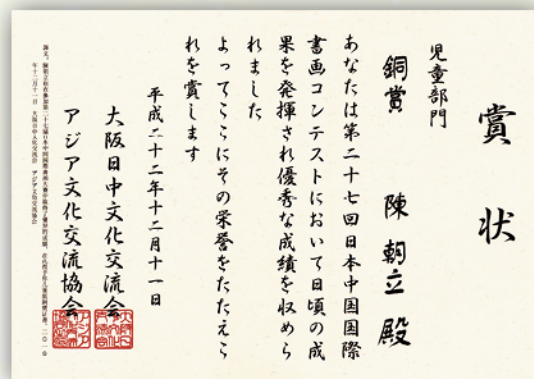 賞状
児童部門
銅賞　陳朝立殿
あなたは第二十七回日本中国国際
書画コンテストにおいて日頃の成
果を発揮され優秀な成績を収めら
れました
よってここにその栄誉をたたえら
れを賞します
平成二十二年十二月十一日
大阪日中文化交流会
アジア文化交流協会